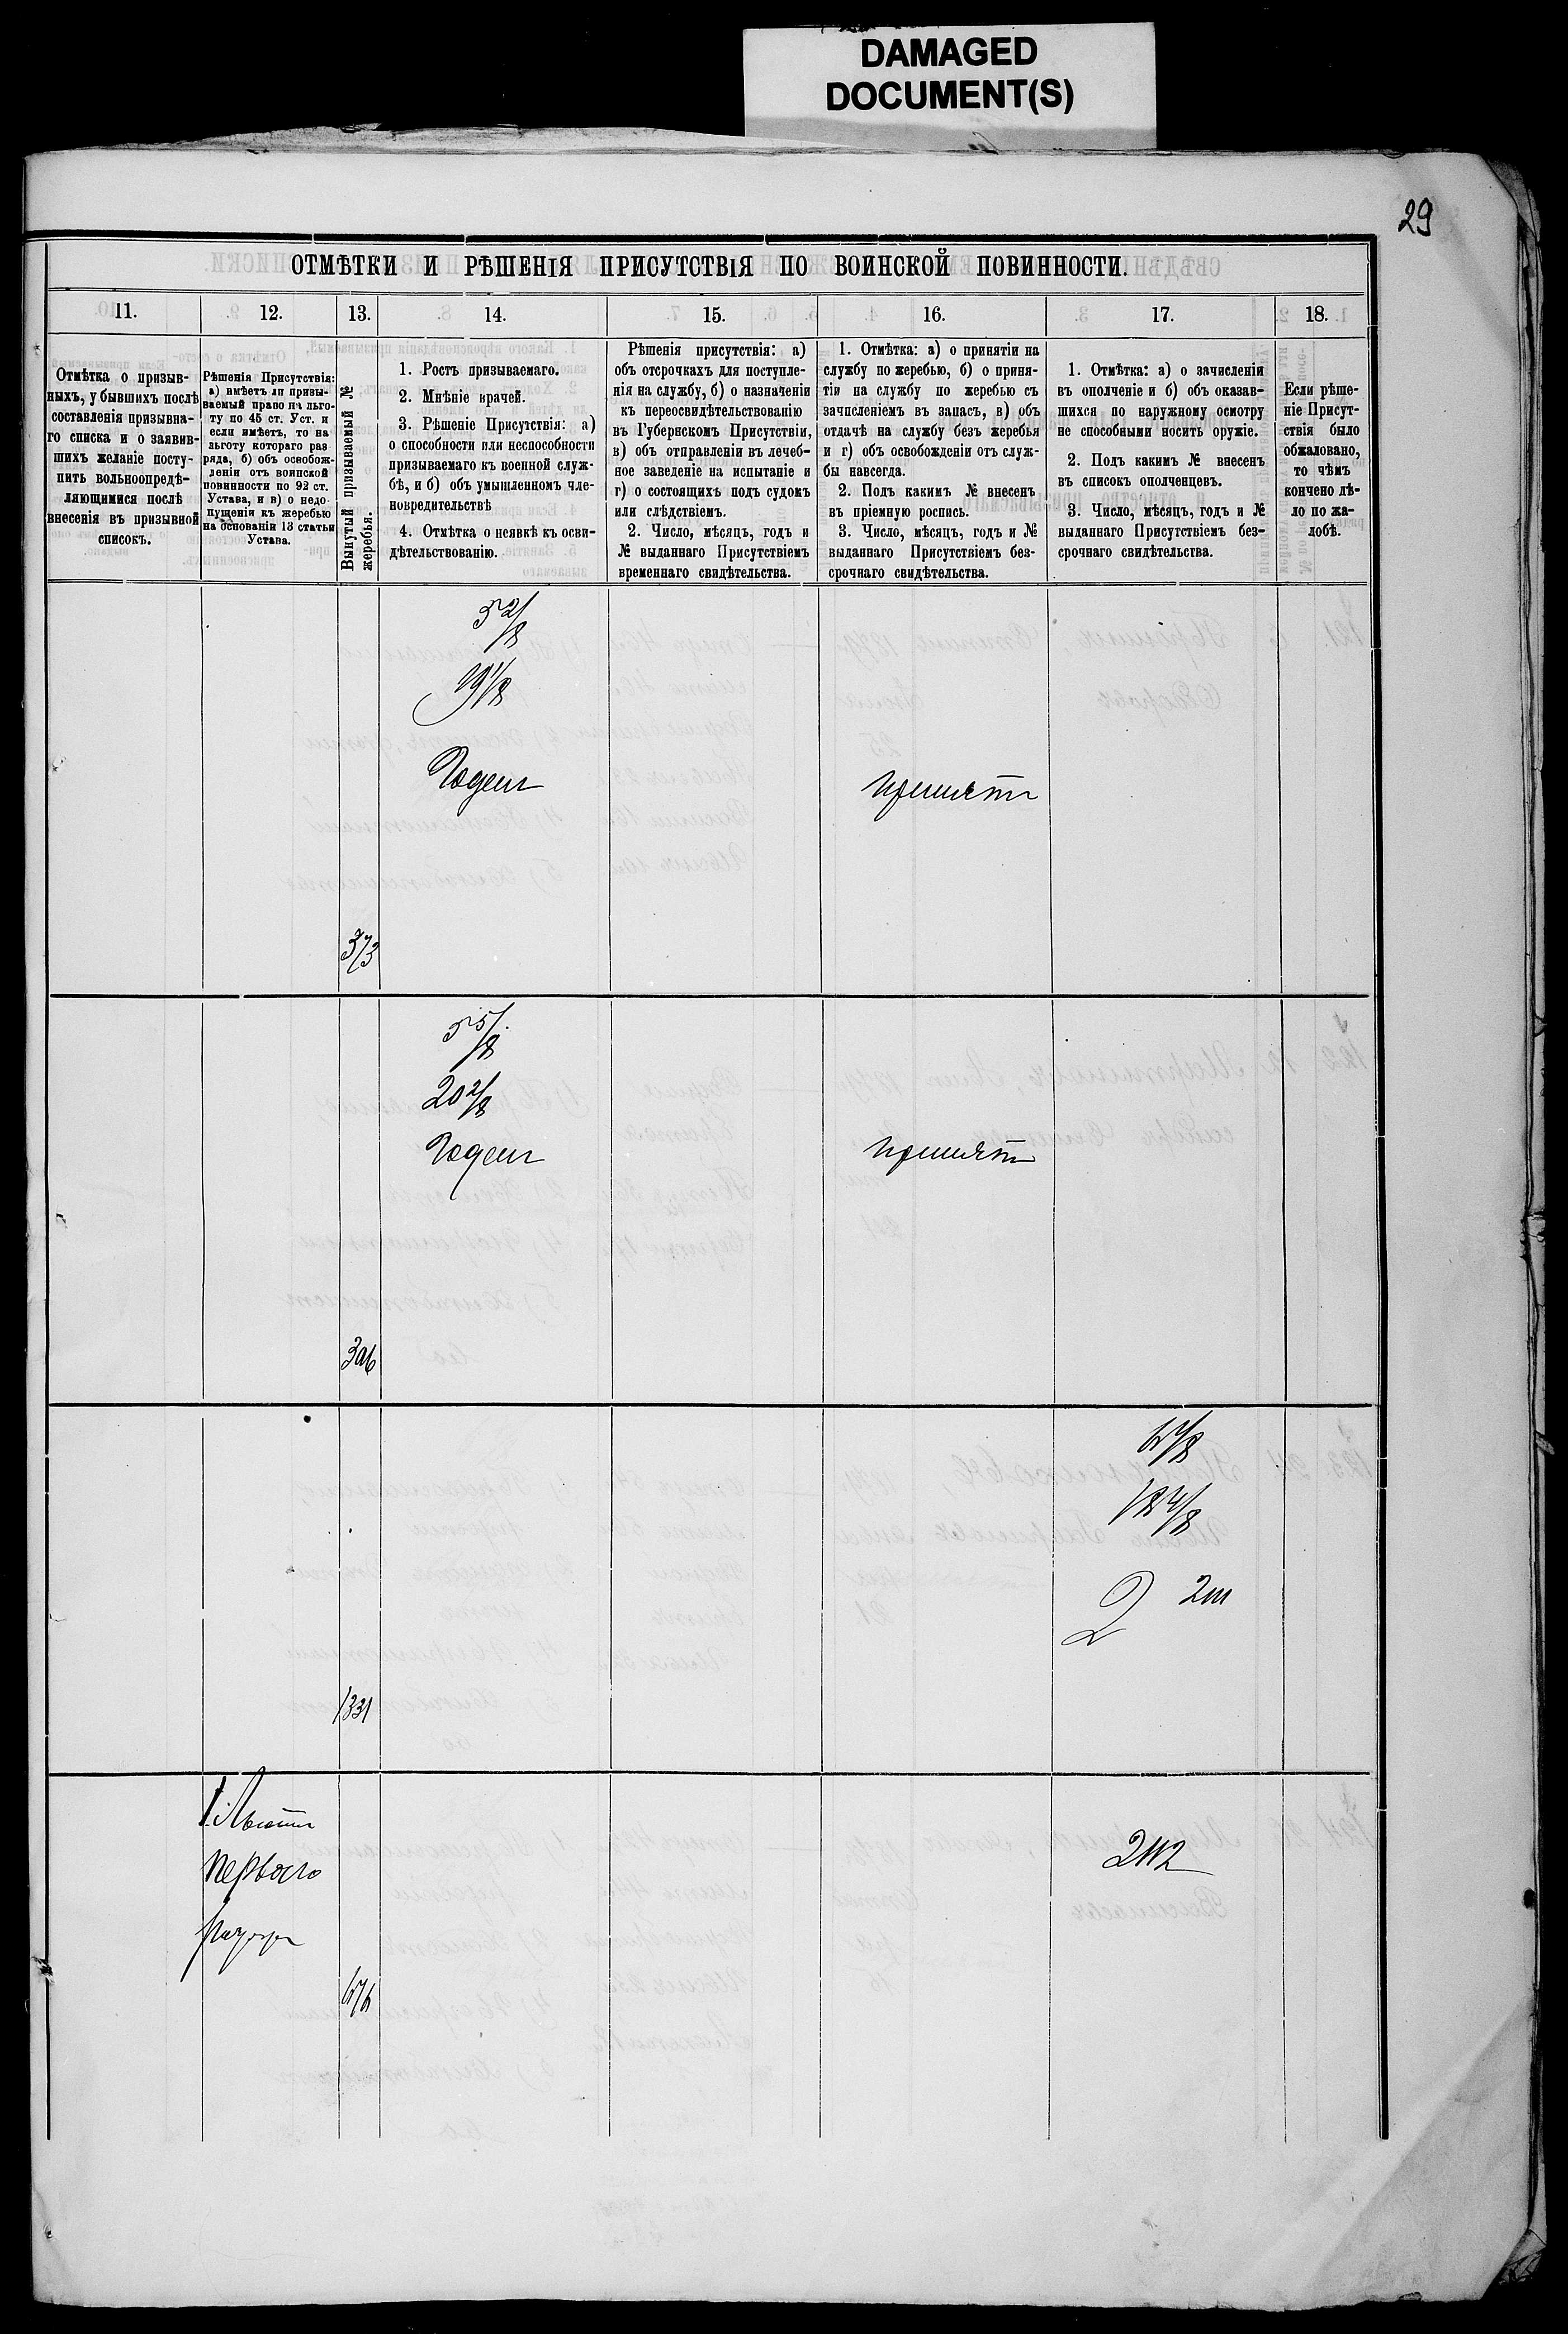 DAMAGED
DOCUMENT(S)
29
ОТМѢТКИ И РѢШЕНІЯ ПРИСУТСТВІЯ ПО ВОИНСКОЙ ПОВИННОСТИ.
11. 12. 13. 14. 15. 16. 17. 18.
Отмѣтка о призыв-
ныхъ, у бывшихъ послѣ
составленія призывна-
го списка и о заявив-
шихъ желаніе посту-
пить вольноопредѣ-
ляющимися послѣ
внесенія въ призывной
списокъ.
Рѣшенія Присутствія:
а) имѣетъ ли призы-
ваемый право на льго-
ту по 45 ст. Уст. и
если имѣетъ, то на
льготу котораго раз-
ряда, б) объ освобож-
деніи отъ воинской
повинности по 92 ст.
Устава, и в) о недо-
пущеніи къ жеребью
на основаніи 13 статьи
Устава.
Вынутый призываемый №
жеребья.
1. Ростъ призываемаго.
2. Мнѣніе врачей.
3. Рѣшеніе Присутствія: а)
о способности или неспособности
призываемаго къ военной служ-
бѣ, и б) объ умышленномъ чле-
новредительствѣ
4. Отмѣтка о неявкѣ къ осви-
дѣтельствованію.
Рѣшенія присутствія: а)
объ отсрочкахъ для поступле-
нія на службу, б) о назначеніи
къ переосвидѣтельствованію
въ Губернскомъ Присутствіи,
в) объ отправленіи въ лечеб-
ное заведеніе на испытаніе и
г) о состоящихъ подъ судомъ
или слѣдствіемъ.
2. Число, мѣсяцъ, годъ и
№ выданнаго Присутствіемъ
временнаго свидѣтельства.
1. Отмѣтка: а) о принятіи на
службу по жеребью, б) о приня-
тіи на службу по жеребью съ
зачисленіемъ въ запасъ, в) объ
отдачѣ на службу безъ жеребья
и г) объ освобожденіи отъ служ-
бы навсегда.
2. Подъ какимъ № внесенъ
въ пріемную роспись.
3. Число, мѣсяцъ, годъ и №
выданнаго Присутствіемъ без-
срочнаго свидѣтельства.
1. Отмѣтка: а) о зачисленіи
въ ополченіе и б) объ оказав-
шихся по наружному осмотру
не способными носить оружіе.
2. Подъ какимъ № внесенъ
въ списокъ ополченцевъ.
3. Число, мѣсяцъ, годъ и №
выданнаго Присутствіемъ без-
срочнаго свидѣтельства.
Если рѣше-
ніе Присут-
ствія было
обжаловано,
то чѣмъ
кончено дѣ-
ло по жа-
лобѣ.
5 2/8
19 1/8
Годенъ
принятъ
373
5 5/8
20 2/8
Годенъ
принятъ
306
18 4/8
1331
1. Льготы
перваго
разряда
676